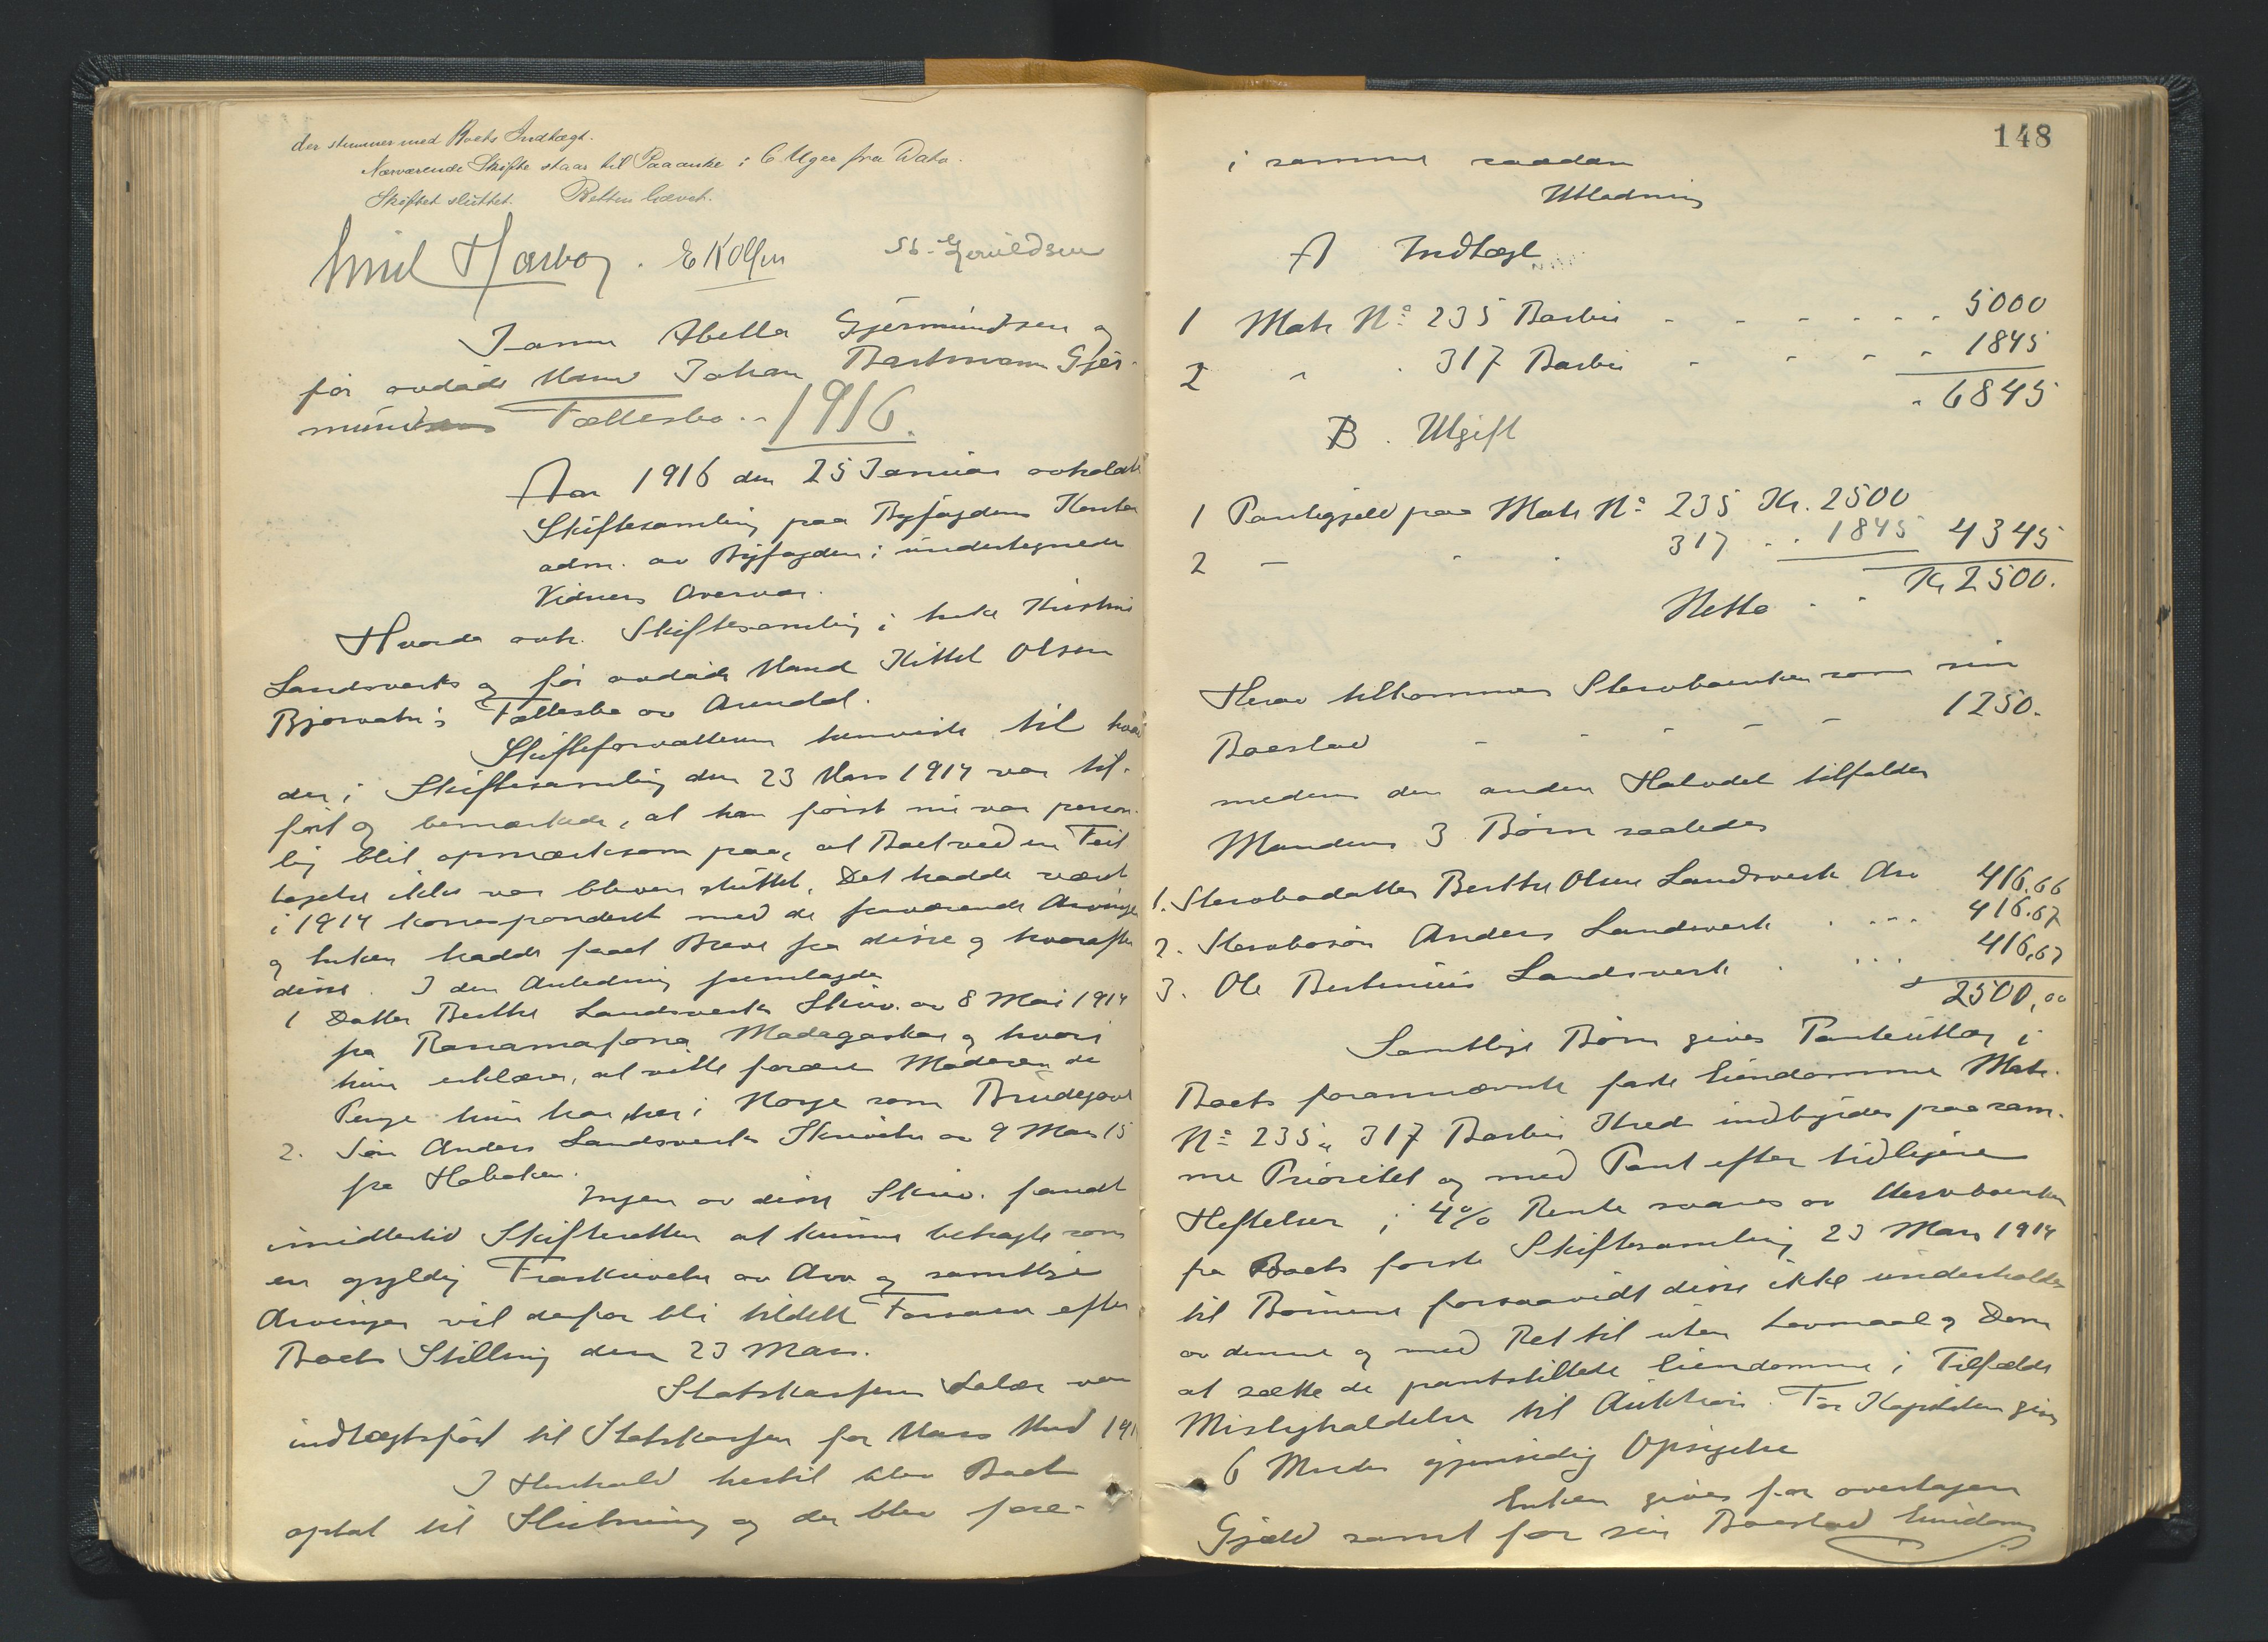 der stemmer med Boets Indtægt.
Nærværende Skifte staar til Paaanke i 6 Uger fra Dato.
Skiftet sluttet. Retten hævet.
Emil Harboy. E Kolsen
Abella Gjermundsen og
før avdøde Mand Johan Bertmann Gjer-
mundsens Fællesbo. 1916.
Aar 1916 den 25 Januar avholdtes
Skiftesamling paa Byfogdens Kontor
adm. av Byfogden i undertegnede
Vidners Overvær.
Hvorda avh. Skiftesamling i Enke Kristine
Landsverks og før avdøde Mand Kittel Olsen
Bjorvatn's Fællesbo av Arendal.
Skifteforvalteren henviste til hvad
der i Skiftesamling den 23 Mars 1914 var til-
ført og bemærkede, at han først nu var person-
lig blit opmærksom paa, at Boet ved en Feil
tagelse ikke var bleven sluttet. Det hadde været
i 1914 korrespondert med de fraværende Arvinger
og Enken hadde faaet Breve fra disse og hvorefter
disse. I den Anledning fremlagdes
1 Datter Berthe Landsverks Skriv. av 8 Mai 1914
fra Ranamafona Madagaskar og hvori
hun erklærer, at ville forære Moderen de
Penge hun har her i Norge som Brudegave
2. Søn Anders Landsverks Skrivelse av 9 Mars 15
fra Hoboken.
Ingen av disse Skriv. fandt
imidlertid Skifteretten at kunne betragte som
en gyldig Fraskrivelse av Arv og samtlige
Arvinger vil derfor bli tildelt Farsarv efter
Boets Stilling den 23 Mars.
Statskassens Salær var
indtægtsført til Statskassen for Mars Mnd 1914
I Henhold hertil blev Boet
optat til Slutning og der blev fore-
148
i samme saadan
Utlodning
A Indtægt
1 Matr Nº 235 Barbu - - - - - - 5000
2 " . 317 Barbu - - - - 1845
. 6845
B. Utgift
1 Pantegjeld paa Matr Nº 235 Kr. 2500
2 - - . 317 . . 1845 4345
Netto . . Kr 2500.
Herav tilkommer Stervboenken som sin
Boeslod - - - - - 1250.
medens den anden Halvdel tilfalder
Mandens 3 Børn saaledes
1. Stervbodatter Berthe Olsen Landsverk Arv 416.66
2. Stervbosøn Anders Landsverk . ... 416.67
3. Ole Bertinius Landsverk . ... 416,67
2500,00
Samtlige Børn gives Panteutlæg i
Boets forannævnte faste Eiendomme Matr.
Nº 235 & 317 Barbu Kreds indbyrdes paa sam-
me Prioritet og med Pant efter tidligere
Heftelser; 4% Rente svares av Stervboenken
fra Boets første Skiftesamling 23 Mars 1914
til Børnene forsaavidt disse ikke underholdes
av denne og med Ret til uten Lovmaal & Dom
at sætte de pantstillede Eiendomme i Tilfælde
Misligholdelse til Auktion. For Kapitalen gives
6 Mnders gjensidig Opsigelse
Enken gives for overtagen
Gjæld samt for sin Boeslod Eiendom